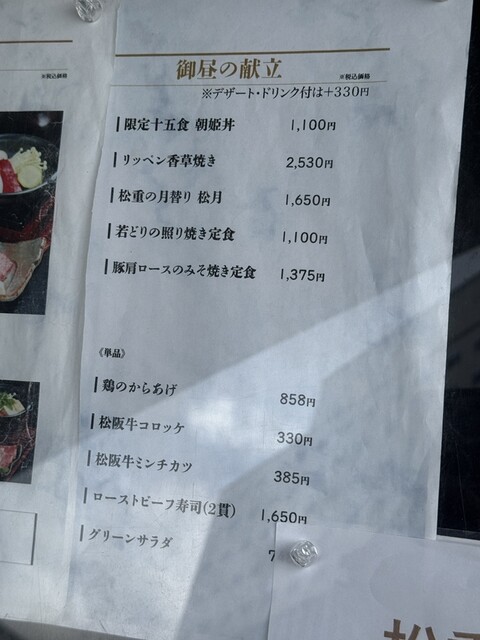 ※税込価格
御昼の献立
※税込価格
※デザート・ドリンク付は+330円
限定十五食 朝姫丼 1,100円
リッペン香草焼き 2,530円
松重の月替り 松月 1,650円
若どりの照り焼き定食 1,100円
豚肩ロースのみそ焼き定食 1,375円
《単品》
鶏のからあげ 858円
松阪牛コロッケ 330円
松阪牛ミンチカツ 385円
ローストビーフ寿司(2貫) 1,650円
グリーンサラダ 7
松